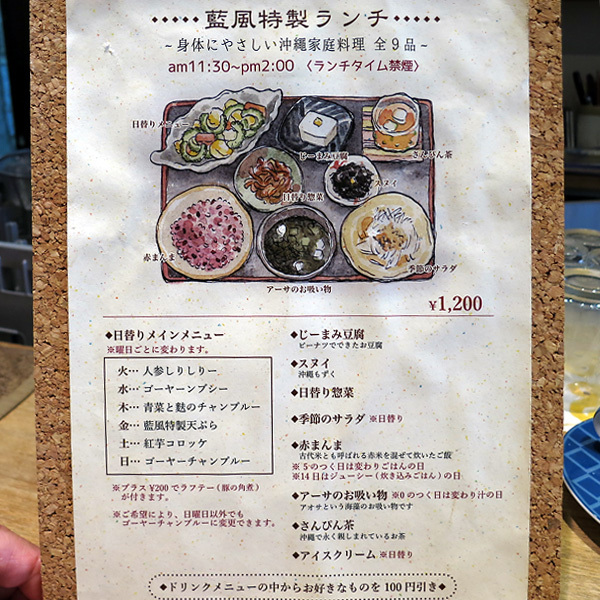 藍風特製ランチ
~身体にやさしい沖縄家庭料理 全9品~
am11:30~pm2:00 〈ランチタイム禁煙〉
日替りメニュー
じーまみ豆腐
さんぴん茶
日替り惣菜
スヌイ
赤まんま
アーサのお吸い物
季節のサラダ
¥1,200
◆日替りメインメニュー
※曜日ごとに変わります。
火… 人参しりしりー
水… ゴーヤーンブシー
木… 青菜と麩のチャンプルー
金… 藍風特製天ぷら
土… 紅芋コロッケ
日… ゴーヤーチャンプルー
※プラス¥200でラフテー(豚の角煮)
が付きます。
※ご希望により、日曜日以外でも
ゴーヤーチャンプルーに変更できます。
◆じーまみ豆腐
ピーナツでできたお豆腐
◆スヌイ
沖縄もずく
◆日替り惣菜
◆季節のサラダ ※日替り
◆赤まんま
古代米とも呼ばれる赤米を混ぜて炊いたご飯
※5のつく日は変わりごはんの日
※14日はジューシー(炊き込みごはん)の日
◆アーサのお吸い物 ※0のつく日は変わり汁の日
アオサという海藻のお吸い物です
◆さんぴん茶
沖縄で永く親しまれているお茶
◆アイスクリーム ※日替り
◆ドリンクメニューの中からお好きなものを100円引き◆